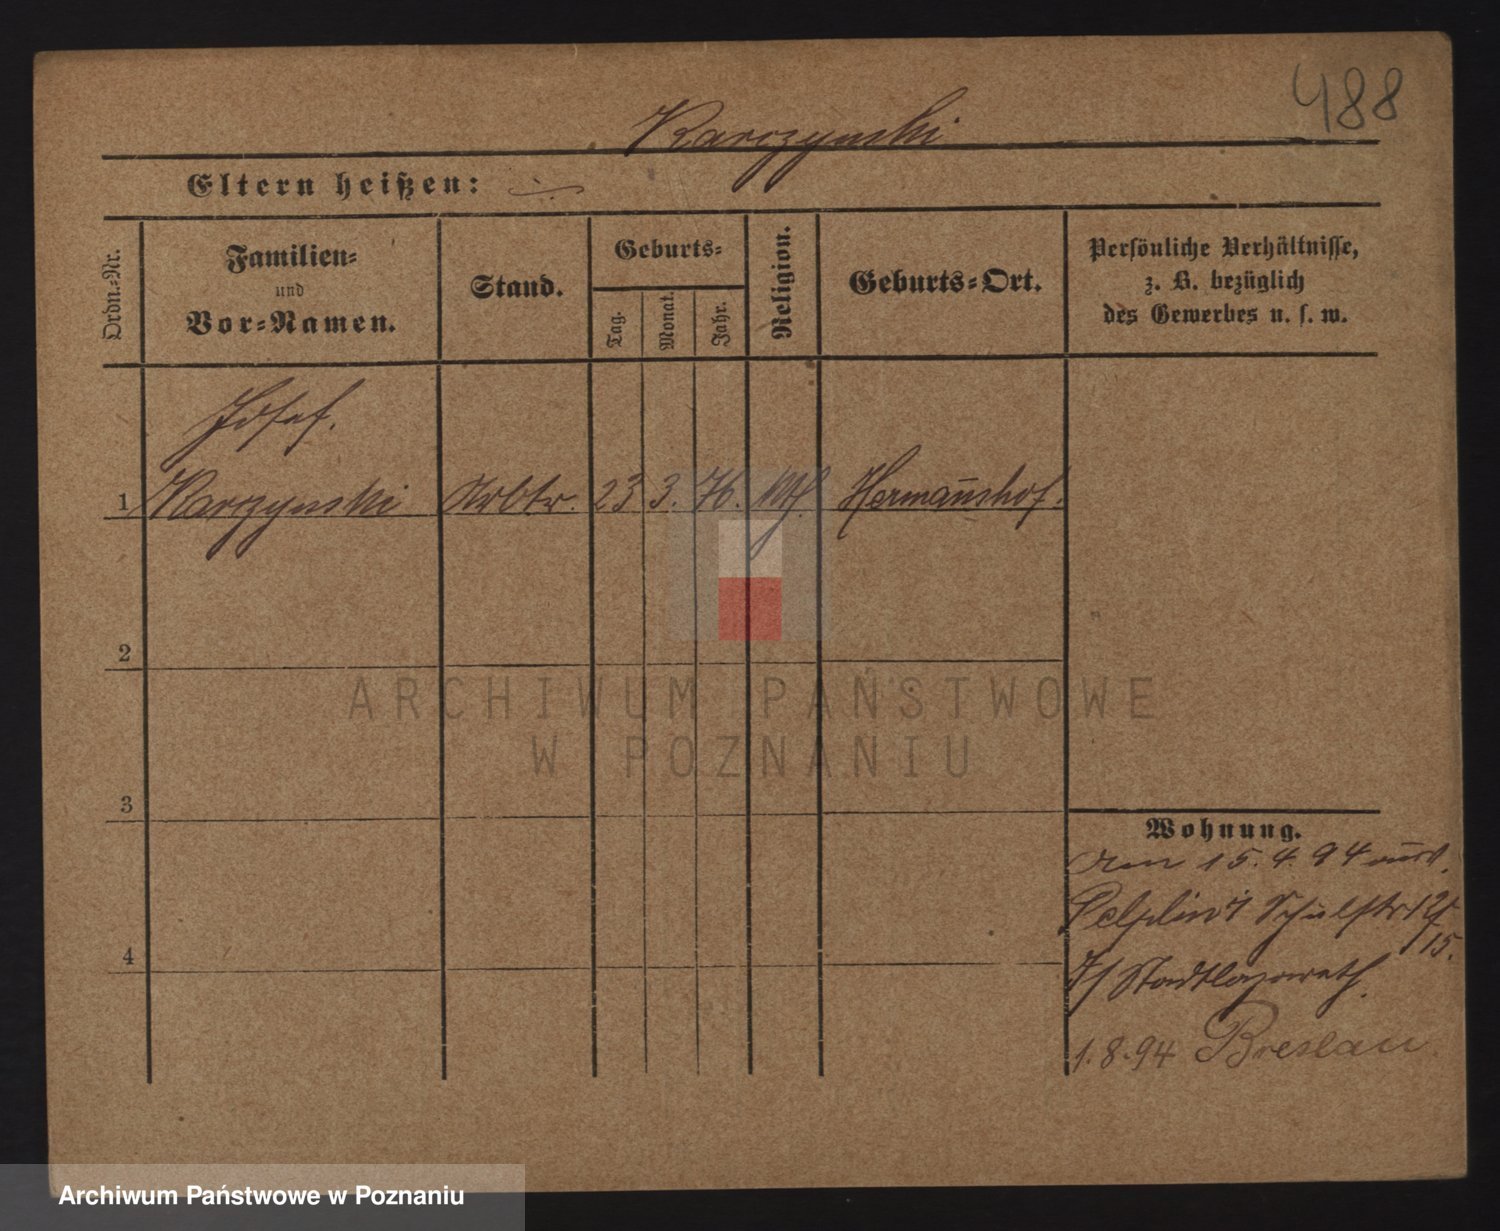 488
Karczynski
Eltern heißen: -:-
Ordn.-Nr.
Familien-
und
Vor-Namen.
Stand.
Geburts-
Tag.
Monat.
Jahr.
Religion.
Geburts-Ort.
Persönliche Verhältnisse,
z. B. bezüglich
des Gewerbes u. s. w.
Josef.
1 Karczynski Arbtr. 23 3. 76. kth. Hermannshof.
2
3
4
Wohnung.
Am 15.4.94 aus
Pelplin Schulstr 12/15.
Stadtlazareth.
1.8.94 Breslau.
ARCHIWUM PAŃSTWOWE
W POZNANIU
Archiwum Państwowe w Poznaniu